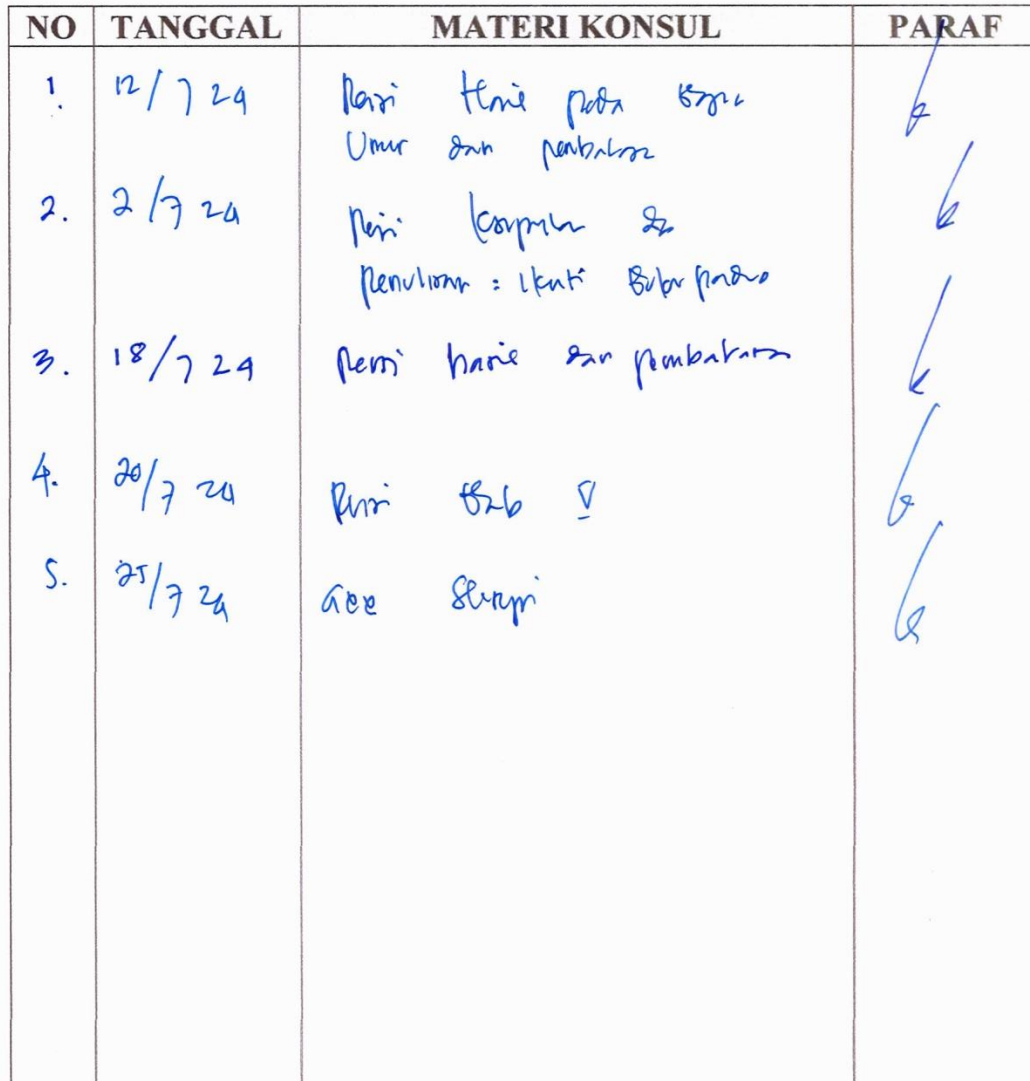 NO TANGGAL MATERI KONSUL PARAF
1. 12/7 24 Revisi Hasil pada
Umur dan pembahasan
2. 2/7 24 Revisi
Penulisan : Ikuti
3. 18/7 24 Revisi hasil dan pembahasan
4. 20/7 24 Revisi Bab V
5. 25/7 24 acc Skripsi